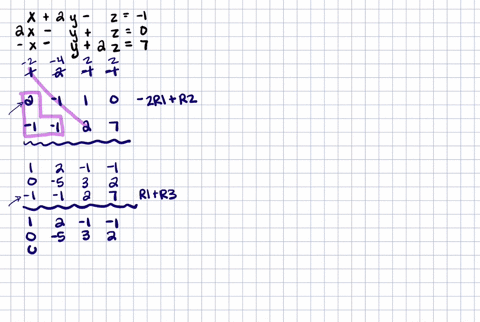 x + 2y - z = -1
2x - y + z = 0
-x - y + 2z = 7
-2 -4 2 2
1 2 -1 -1
2 -1 1 0 -2R1+R2
-1 -1 2 7
1 2 -1 -1
0 -5 3 2
-1 -1 2 7 R1+R3
1 2 -1 -1
0 -5 3 2
0